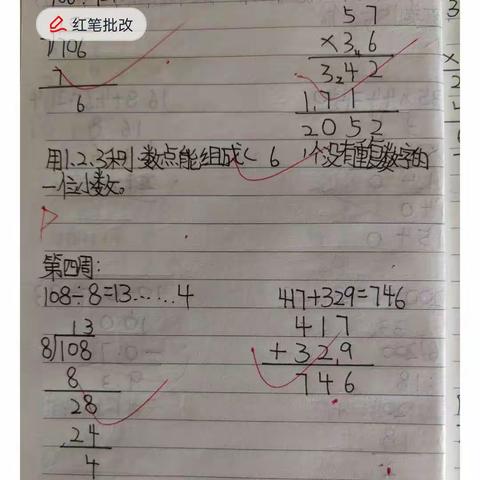 红笔批改
57
×3₄6
7⟌106
3₂42
7
171
6
2052
用1.2.3和小数点能组成( 6 )个没有重复数字的
一位小数。
第四周:
108÷8=13……4
417+329=746
13
417
8⟌108
+32.9
8
746
28
24
4